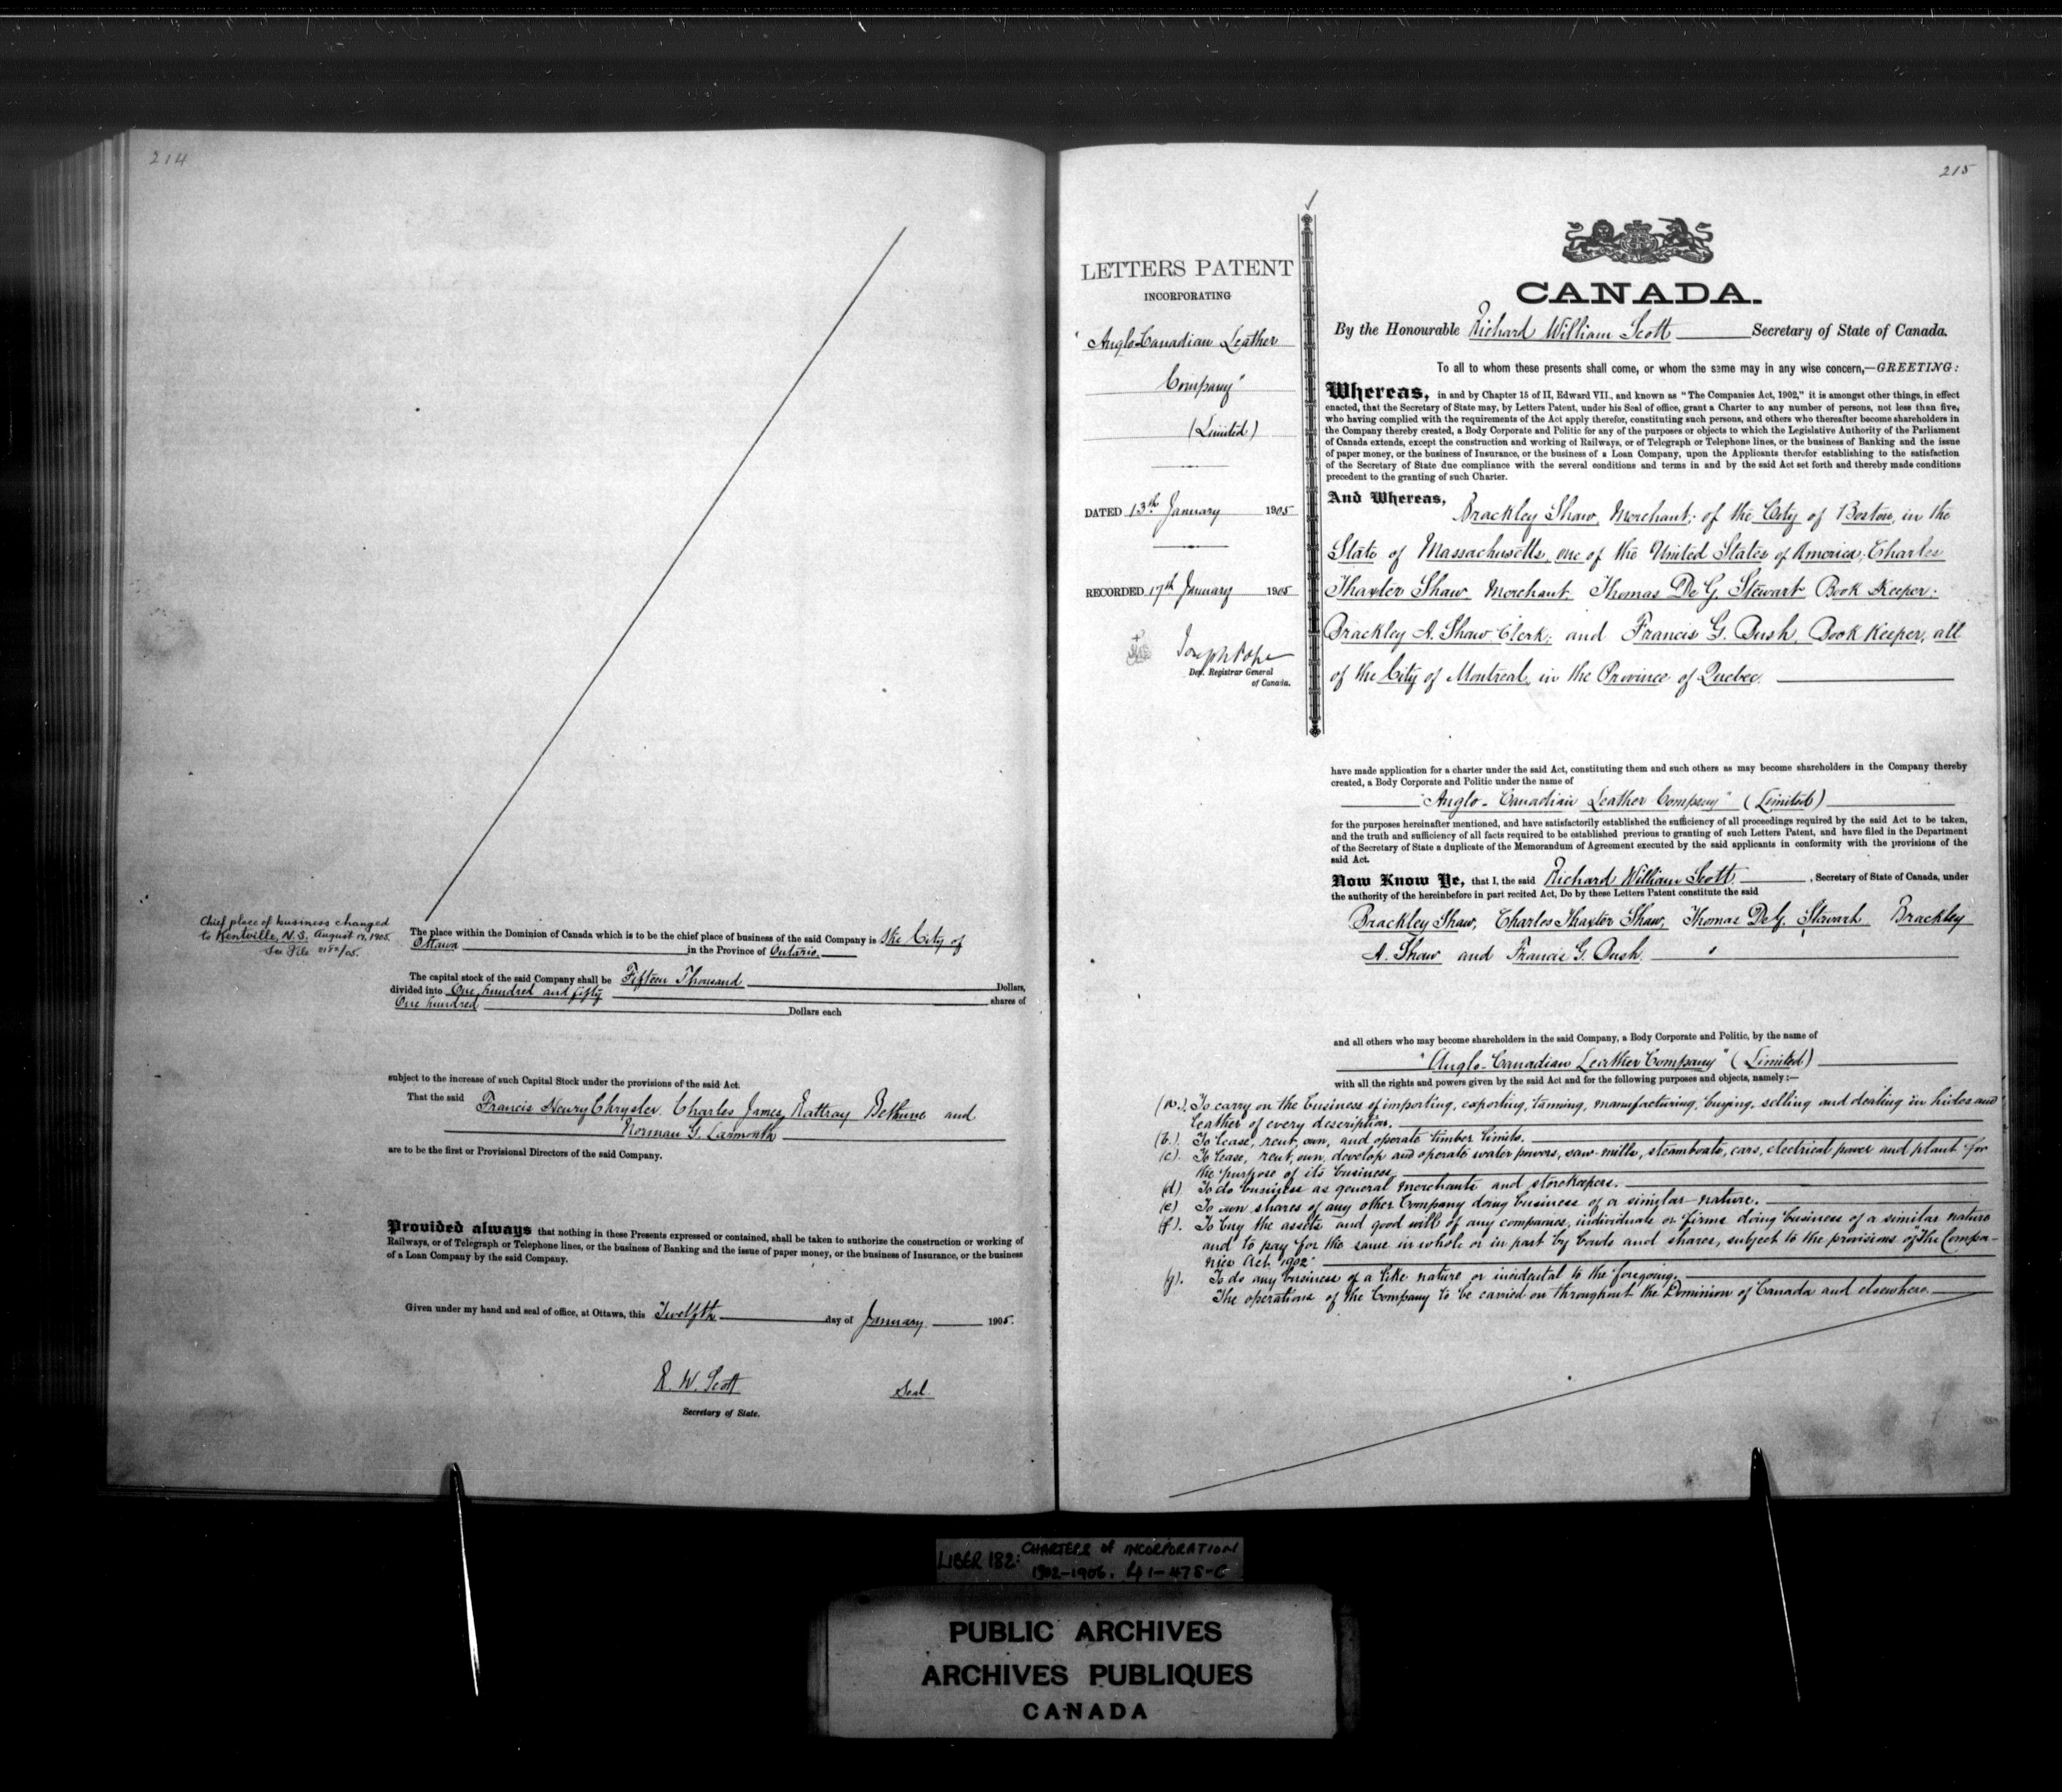 214
Chief place of business changed
to Kentville, N.S. August 17, 1905.
See File
The place within the Dominion of Canada which is to be the chief place of business of the said Company is the City of
Ottawa in the Province of Ontario.
The capital stock of the said Company shall be Fifteen Thousand Dollars,
divided into One hundred and fifty shares of
One hundred Dollars each
subject to the increase of such Capital Stock under the provisions of the said Act.
That the said Francis Henry Chrysler, Charles James Rattray Bethune and
Norman G. Larmonth
are to be the first or Provisional Directors of the said Company.
Provided always that nothing in these Presents expressed or contained, shall be taken to authorize the construction or working of
Railways, or of Telegraph or Telephone lines, or the business of Banking and the issue of paper money, or the business of Insurance, or the business
of a Loan Company by the said Company.
Given under my hand and seal of office, at Ottawa, this Twelfth day of January 1905.
R. W. Scott Seal.
Secretary of State.
215
LETTERS PATENT
INCORPORATING
"Anglo-Canadian Leather
Company"
(Limited)
DATED 13th January 1905
RECORDED 17th January 1905
Joseph Pope
Dep. Registrar General
of Canada.
CANADA.
By the Honourable Richard William Scott Secretary of State of Canada.
To all to whom these presents shall come, or whom the same may in any wise concern,—GREETING:
Whereas, in and by Chapter 15 of II, Edward VII., and known as "The Companies Act, 1902," it is amongst other things, in effect
enacted, that the Secretary of State may, by Letters Patent, under his Seal of office, grant a Charter to any number of persons, not less than five,
who having complied with the requirements of the Act apply therefor, constituting such persons, and others who thereafter become shareholders in
the Company thereby created, a Body Corporate and Politic for any of the purposes or objects to which the Legislative Authority of the Parliament
of Canada extends, except the construction and working of Railways, or of Telegraph or Telephone lines, or the business of Banking and the issue
of paper money, or the business of Insurance, or the business of a Loan Company, upon the Applicants therefor establishing to the satisfaction
of the Secretary of State due compliance with the several conditions and terms in and by the said Act set forth and thereby made conditions
precedent to the granting of such Charter.
And Whereas, Brackley Shaw, Merchant; of the City of Boston, in the
State of Massachusetts, one of the United States of America, Charles
Thaxter Shaw, Merchant, Thomas De G. Stewart Book Keeper;
Brackley A. Shaw, Clerk; and Francis G. Bush, Book Keeper, all
of the City of Montreal, in the Province of Quebec.
have made application for a charter under the said Act, constituting them and such others as may become shareholders in the Company thereby
created, a Body Corporate and Politic under the name of
"Anglo-Canadian Leather Company" (Limited)
for the purposes hereinafter mentioned, and have satisfactorily established the sufficiency of all proceedings required by the said Act to be taken,
and the truth and sufficiency of all facts required to be established previous to granting of such Letters Patent, and have filed in the Department
of the Secretary of State a duplicate of the Memorandum of Agreement executed by the said applicants in conformity with the provisions of the
said Act.
Now Know Ye, that I, the said Richard William Scott, Secretary of State of Canada, under
the authority of the hereinbefore in part recited Act, Do by these Letters Patent constitute the said
Brackley Shaw, Charles Thaxter Shaw, Thomas De G. Stewart Brackley
A. Shaw and Francis G. Bush
and all others who may become shareholders in the said Company, a Body Corporate and Politic, by the name of
"Anglo-Canadian Leather Company" (Limited)
with all the rights and powers given by the said Act and for the following purposes and objects, namely:—
(a.). To carry on the business of importing, exporting, tanning, manufacturing, buying, selling and dealing in hides and
leather of every description.
(b.). To lease, rent, own, and operate timber limits.
(c). To lease, rent, own, develop and operate water powers, saw-mills, steamboats, cars, electrical power and plant for
the purpose of its business.
(d). To do business as general merchants and storekeepers.
(e) To own shares of any other Company doing business of a similar nature.
(f). To buy the assets and good will of any companies, individuals or firms doing business of a similar nature
and to pay for the same in whole or in part by bonds and shares, subject to the provisions of "The Compa-
nies Act, 1902"
(g). To do any business of a like nature or incidental to the foregoing.
The operations of the Company to be carried on throughout the Dominion of Canada and elsewhere.
LIBER 182: CHARTERS OF INCORPORATION
1902-1906.
PUBLIC ARCHIVES
ARCHIVES PUBLIQUES
CANADA